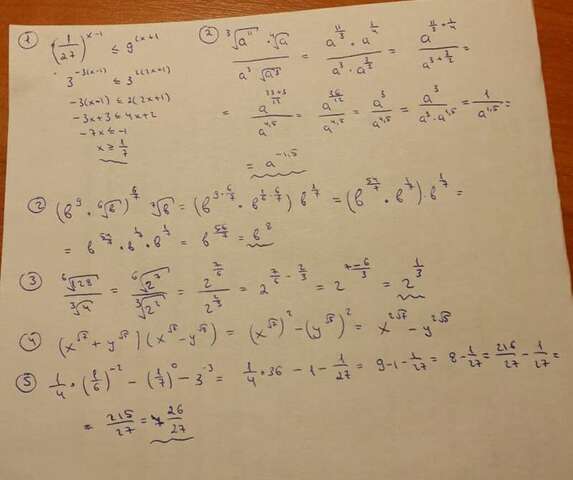 ① (1/27)^(x-1) ≤ 9^(2x+1)
3^(-3(x-1)) ≤ 3^(2(2x+1))
-3(x-1) ≤ 2(2x+1)
-3x+3 ≤ 4x+2
-7x ≤ -1
x ≥ 1/7
② (∛(a^11) · ⁴√a)/(a^3 · √(a^3)) = (a^(11/3) · a^(1/4))/(a^3 · a^(3/2)) = a^(11/3 + 1/4)/a^(3 + 3/2) =
= a^((33+3)/12)/a^(4,5) = a^(36/12)/a^(4,5) = a^3/a^(4,5) = a^3/(a^3 · a^(1,5)) = 1/a^(1,5) =
= a^(-1,5)
② (b^9 · ⁶√b)^(6/7) ⁷√b = (b^(9·6/7) · b^(1/6·6/7)) b^(1/7) = (b^(54/7) · b^(1/7)) · b^(1/7) =
= b^(54/7) · b^(1/7) · b^(1/7) = b^(56/7) = b^8
③ ⁶√128/∛4 = ⁶√(2^7)/∛(2^2) = 2^(7/6)/2^(2/3) = 2^(7/6 - 2/3) = 2^((7-6)/3) = 2^(1/3)
④ (x^√7 + y^√5)(x^√7 - y^√5) = (x^√7)^2 - (y^√5)^2 = x^(2√7) - y^(2√5)
⑤ 1/4 · (1/6)^(-2) - (1/7)^0 - 3^(-3) = 1/4 · 36 - 1 - 1/27 = 9 - 1 - 1/27 = 8 - 1/27 = 216/27 - 1/27 =
= 215/27 = 7 26/27